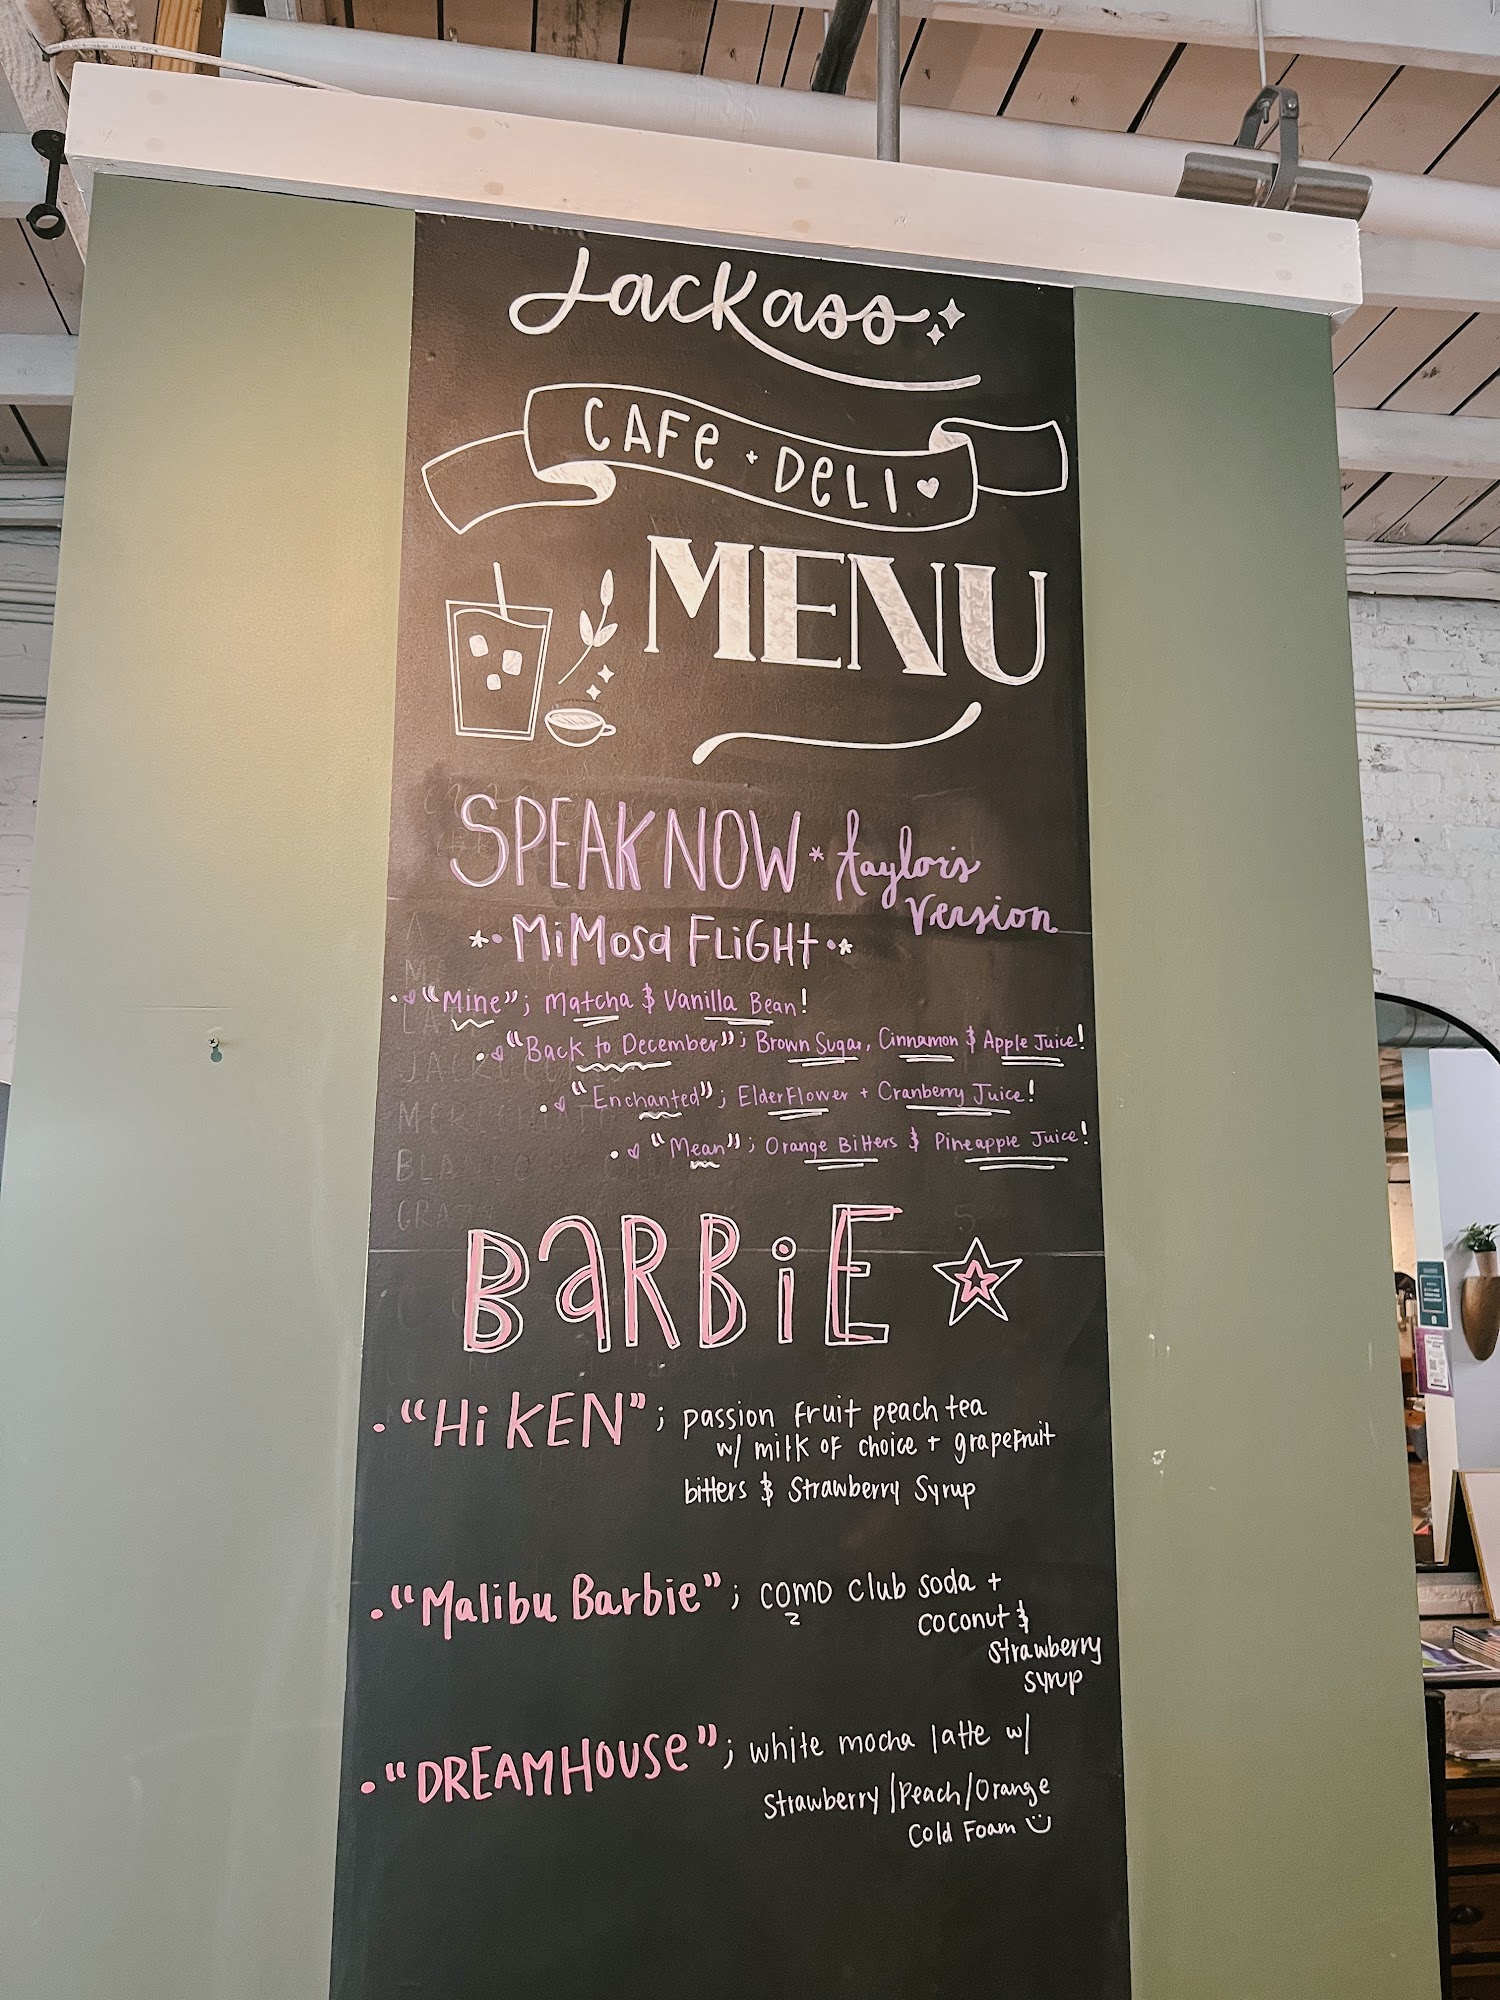 Jackass
CAFe + DeLI
MENU
SPEAK NOW * taylor's
version
*• MiMosa FLiGHt •*
• "Mine"; Matcha & Vanilla Bean!
• "Back to December"; Brown Sugar, Cinnamon & Apple Juice!
• "Enchanted"; ElderFlower + Cranberry Juice!
• "Mean"; Orange Bitters & Pineapple Juice!
BaRBiE
• "Hi KEN"; passion fruit peach tea
w/ milk of choice + grapefruit
bitters & Strawberry Syrup
• "Malibu Barbie"; como club soda +
coconut &
strawberry
syrup
• "DREAMHOUSe"; white mocha latte w/
Strawberry/Peach/Orange
Cold Foam